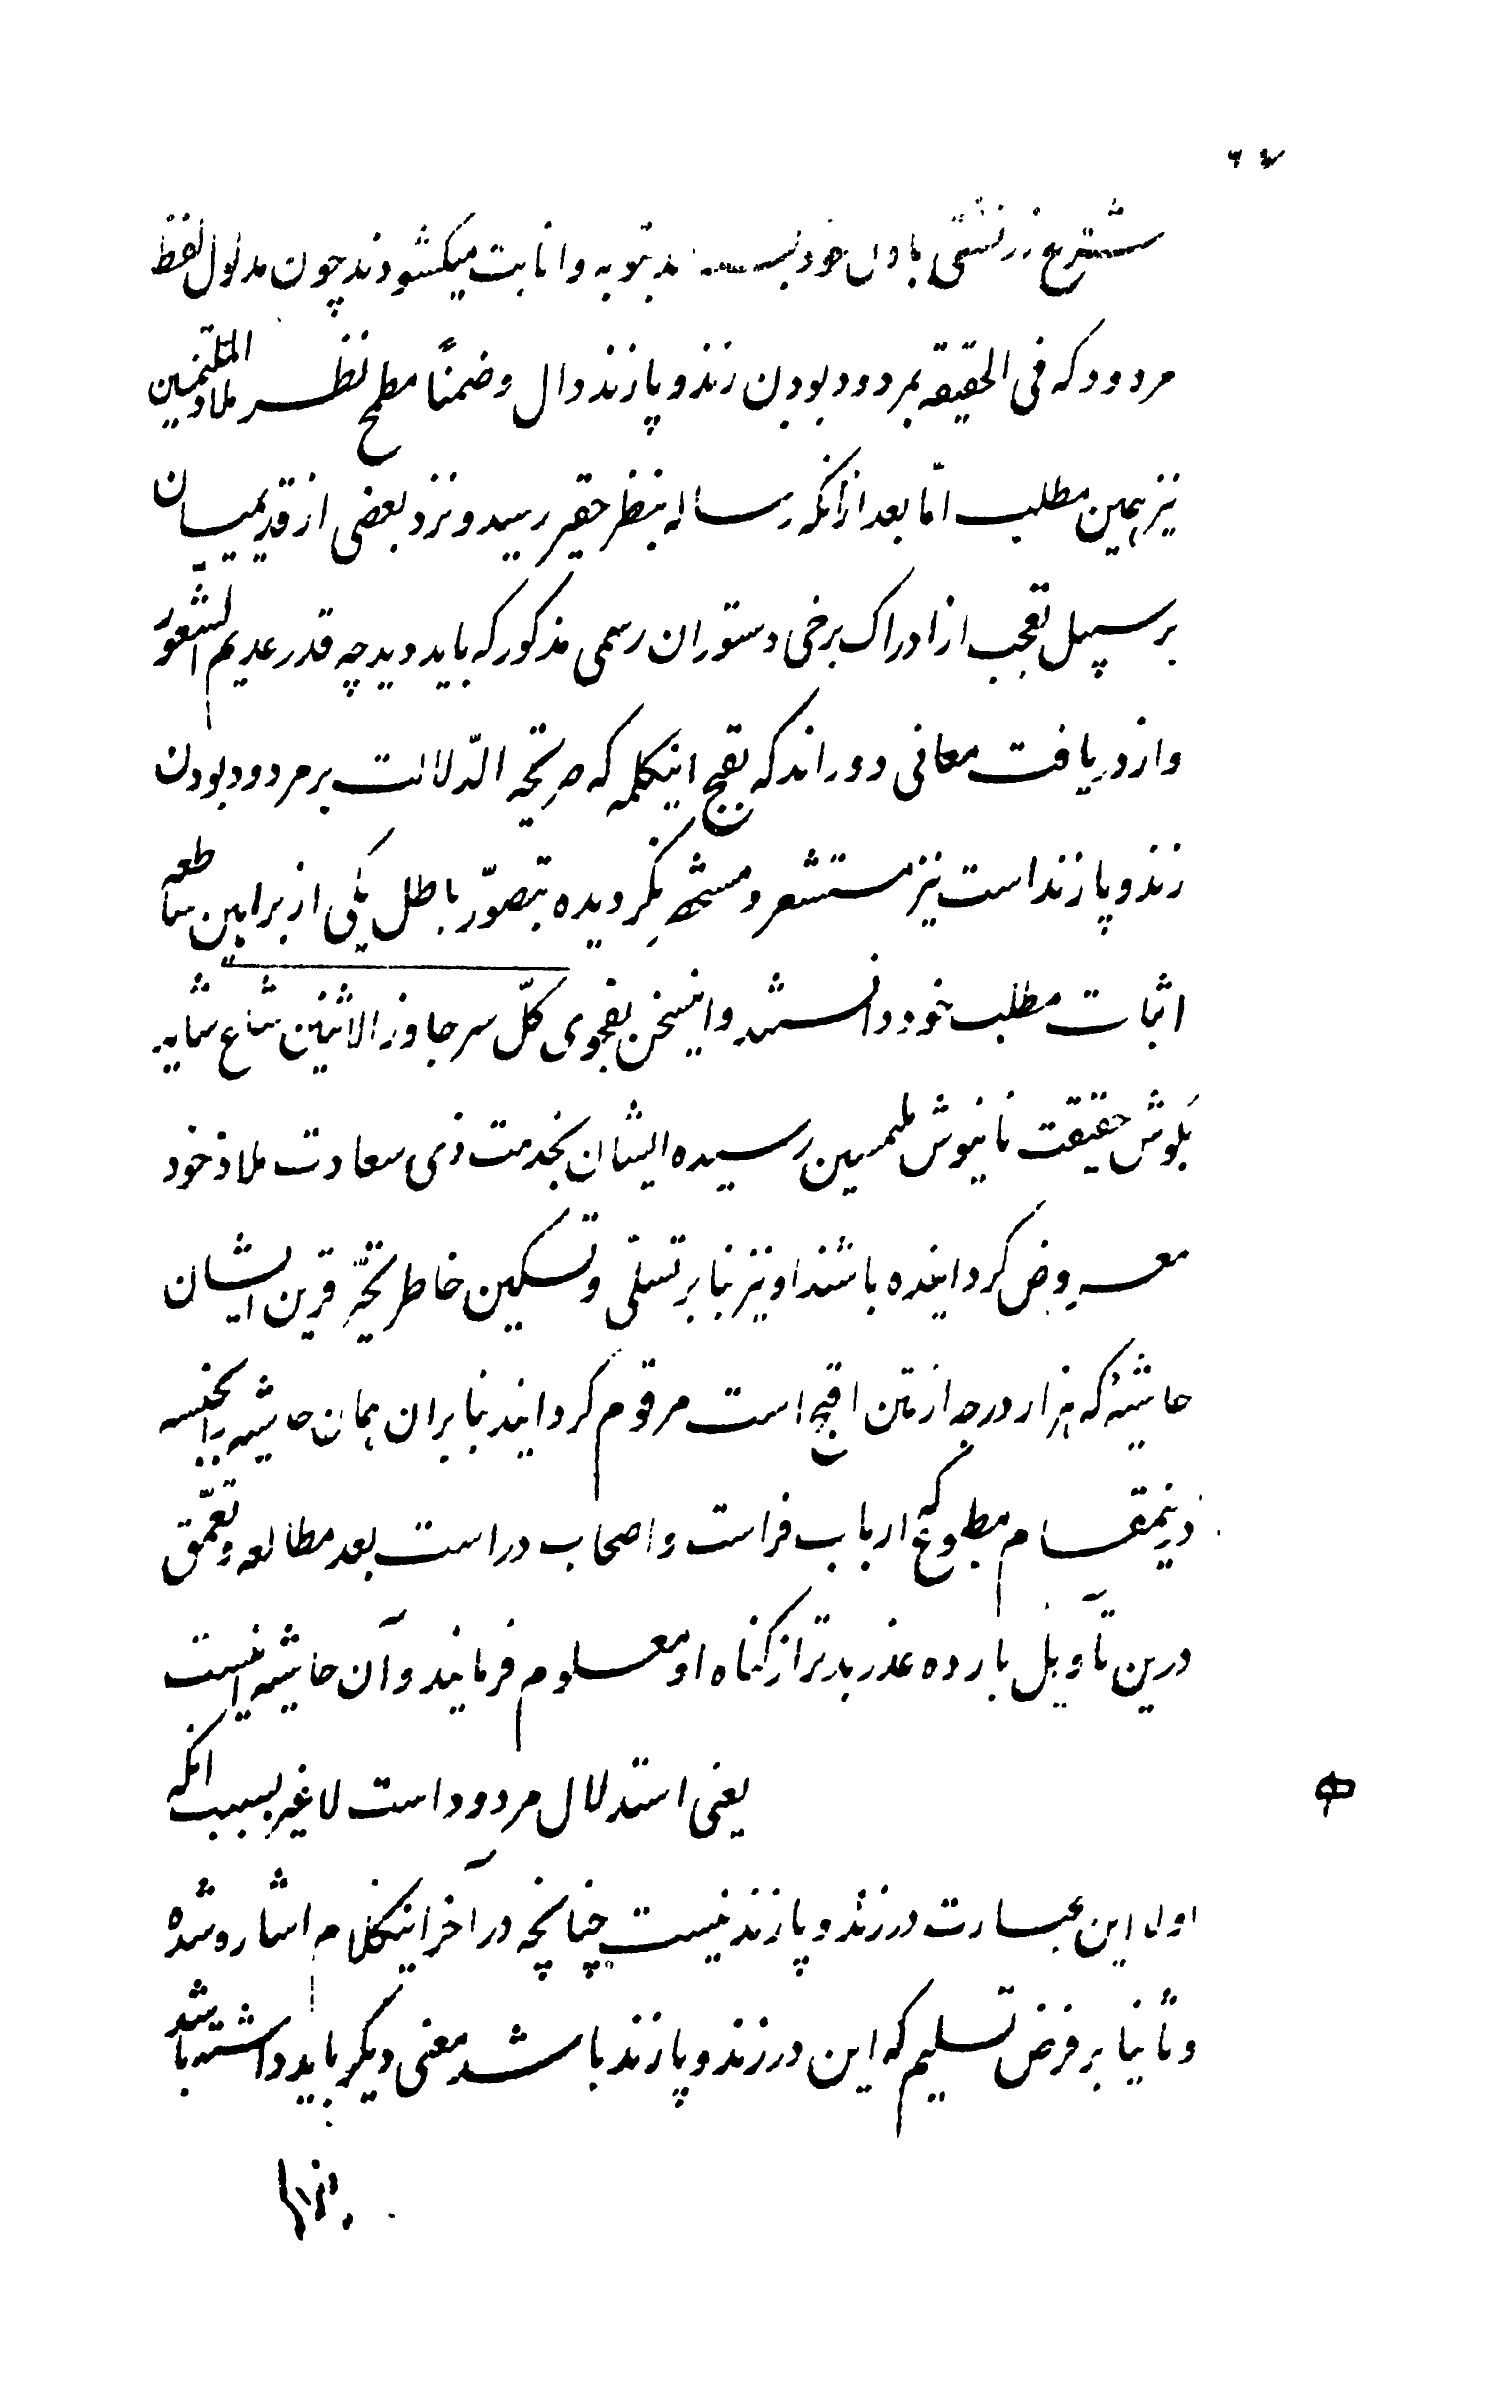 ۶۷
متشرع زرتشتی با دل خود بتوبه و انابت میکشودند چون مدلول لفظ
مردود که فی الحقیقه بمردود بودن زند و پازند دال و ضمناً مطمح نظر ملاذ
نیز همین مطلب امّا بعد ازآنکه رساله بنظر حقیر رسید و نزد بعضی از قدیمیان
بر سبیل تعجب از ادراک برخی دستوران رسمی مذکور که باید دید چه قدر عدیم الشّعور
و از دریافت معانی دوراند که بقبح اینکلمه که صریحة الدّلالت بر مردود بودن
زند و پازند است نیز مستشعر و مستحضر نگردیده بتصوّر باطل یکی از براهین ساطعه
اثبات مطلب خود دانستند و اینسخن بفحوی کلّ سر جاوز الاثنین شاع شاید
بگوش حقیقت نانیوش ملتمسین رسیده ایشان بخدمت ذی سعادت ملاذ خود
معروض گردانیده باشند او نیز بنابر تسلّی و تسکین خاطر تحیّر قرین ایشان
حاشیهٔ که هزار درجه از متن اقبح است مرقوم گردانید بنابران همان حاشیه را بجنسه
درینمقام مطبوع که ارباب فراست و اصحاب دراست بعد مطالعه و تعمّق
درین تأویل بارده عذر بدتر از گناه او معلوم فرمایند و آن حاشیه اینست
یعنی استدلال مردود است لاغیر بسبب آنکه
اولا این عبارت در زند و پازند نیست چنانچه در آخر اینکلام اشاره شده
و ثانیا بر فرض تسلیم که این در زند و پازند باشد معنی دیگر باید داشته باشد